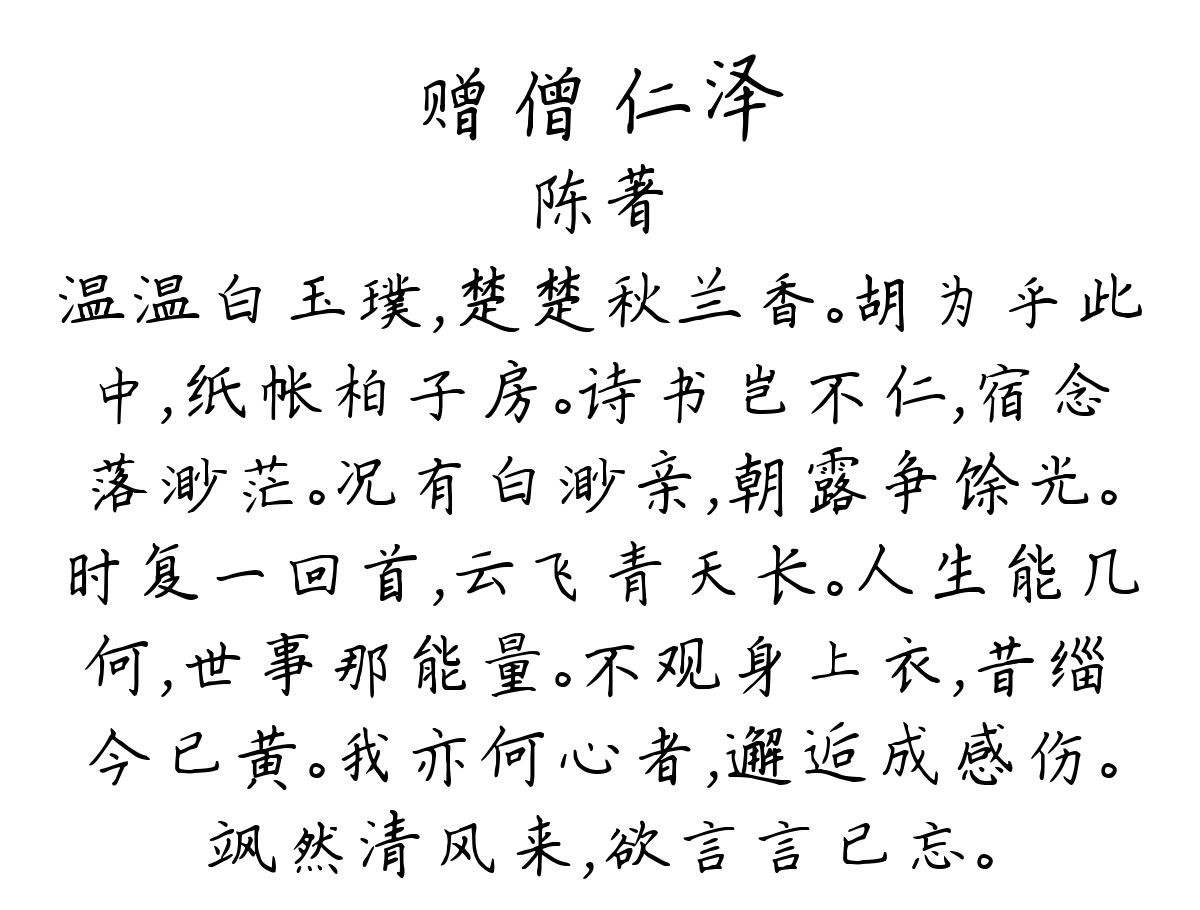 赠僧仁泽
陈著
温温白玉璞,楚楚秋兰香。胡为乎此
中,纸帐柏子房。诗书岂不仁,宿念
落渺茫。况有白渺亲,朝露争馀光。
时复一回首,云飞青天长。人生能几
何,世事那能量。不观身上衣,昔缁
今已黄。我亦何心者,邂逅成感伤。
飒然清风来,欲言言已忘。